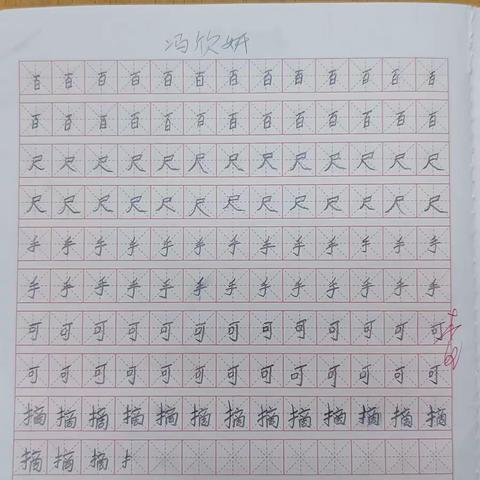 冯欣妍
百百百百百百百百百百百百百
百百百百百百百百百百百百百
尺尺尺尺尺尺尺尺尺尺尺尺尺
尺尺尺尺尺尺尺尺尺尺尺尺尺
手手手手手手手手手手手手手
手手手手手手手手手手手手手
可可可可可可可可可可可可可
可可可可可可可可可可可可可
摘摘摘摘摘摘摘摘摘摘摘摘摘
摘摘摘扌